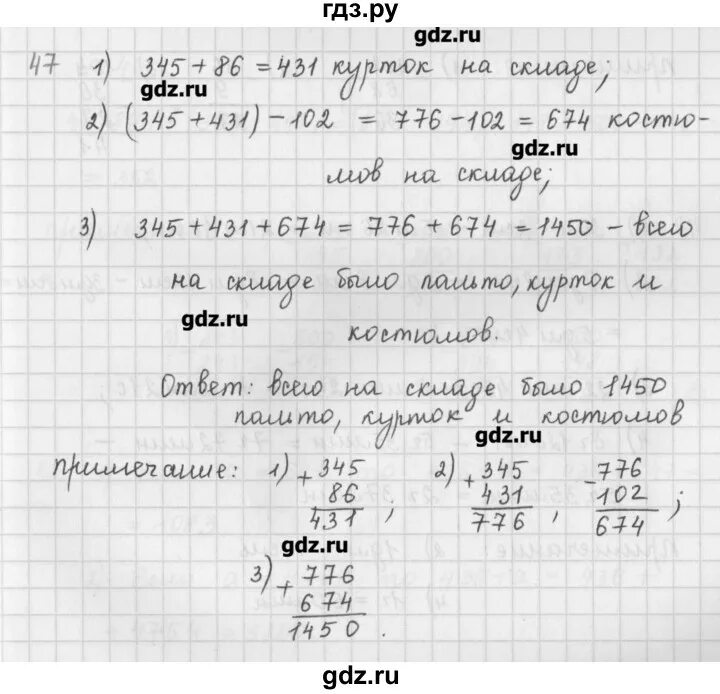 гдз.ру
gdz.ru
47 1) 345 + 86 = 431 курток на складе;
gdz.ru
2) (345 + 431) - 102 = 776 - 102 = 674 костю-
gdz.ru
мов на складе;
3) 345 + 431 + 674 = 776 + 674 = 1450 - всего
на складе было пальто, курток и
gdz.ru
костюмов.
Ответ: всего на складе было 1450
пальто, курток и костюмов
gdz.ru
примечание: 1) + 345 2) + 345 - 776
86 431 102
431 ; 776 , 674 ;
gdz.ru
3) + 776
674
1450 .
gdz.ru